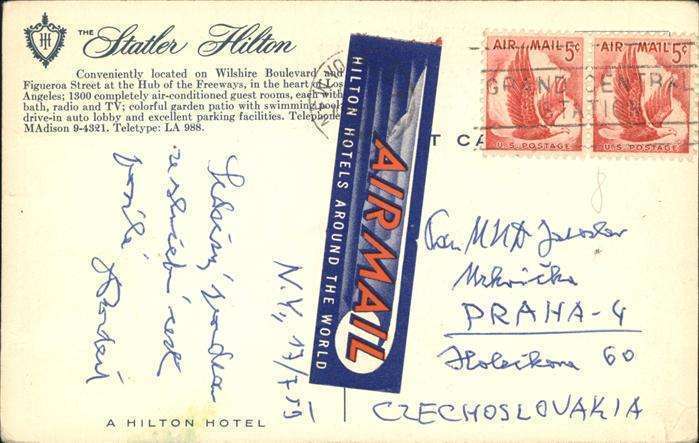 THE Statler Hilton
Conveniently located on Wilshire Boulevard and
Figueroa Street at the Hub of the Freeways, in the heart of Los
Angeles; 1300 completely air-conditioned guest rooms, each with
bath, radio and TV; colorful garden patio with swimming pool,
drive-in auto lobby and excellent parking facilities. Telephone
MAdison 9-4321. Teletype: LA 988.
HILTON HOTELS AROUND THE WORLD
AIR MAIL
AIR MAIL 5¢
U.S. POSTAGE
AIR MAIL 5¢
U.S. POSTAGE
GRAND CENTRAL
STATION
T CA
Srdečný pozdrav
posílá
N.Y., 17/7 59
8
Pan MUDr Jaroslav
Mrkvička
PRAHA-4
Holečkova 60
CZECHOSLOVAKIA
A HILTON HOTEL